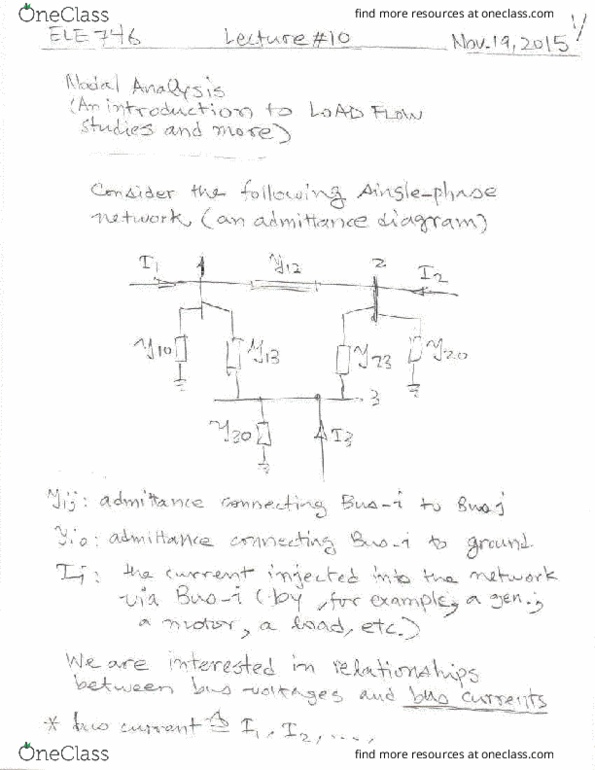 OneClass find more resources at oneclass.com
ELE746 Lecture #10 Nov. 19, 2015 1/
Nodal Analysis
(An introduction to LOAD FLOW
studies and more)
Consider the following single-phase
network (an admittance diagram)
I1 1 y12 2 I2
y10 y13 y23 y20
3
y30 I3
yij: admittance connecting Bus-i to Bus-j
yio: admittance connecting Bus-i to ground.
Ii: the current injected into the network
via Bus-i (by, for example, a gen.,
a motor, a load, etc.)
We are interested in relationships
between bus-voltages and bus currents
* bus current ≜ I1, I2, ...,
OneClass find more resources at oneclass.com